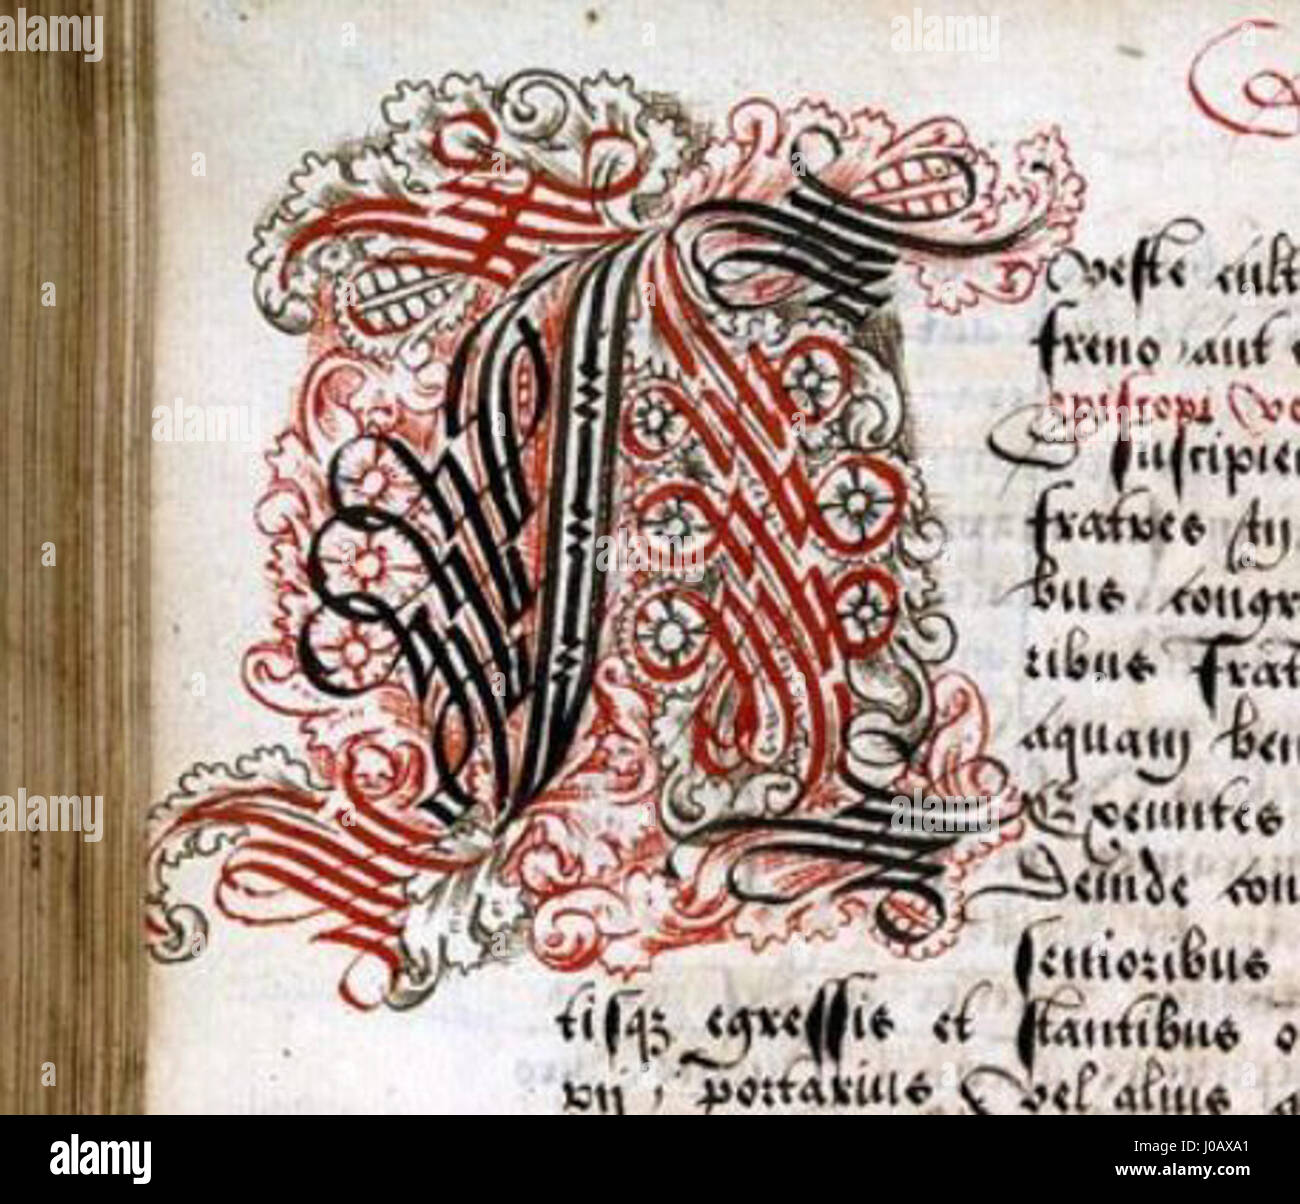 veste cult
freno aut e
episcopi vo
Suscipien
fratres iij
bus congr
ribus frat
aquam ben
Exeuntes
Deinde con
senioribus
tisq; egressis et stantibus o
vij, portarius vel alius a
alamy
Image ID: J0AXA1
www.alamy.com